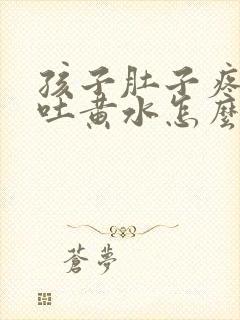 孩子肚子疼
吐黄水怎麽
蒼夢